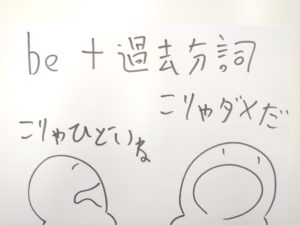 be + 過去分詞
こりゃダメだ
こりゃひどいね